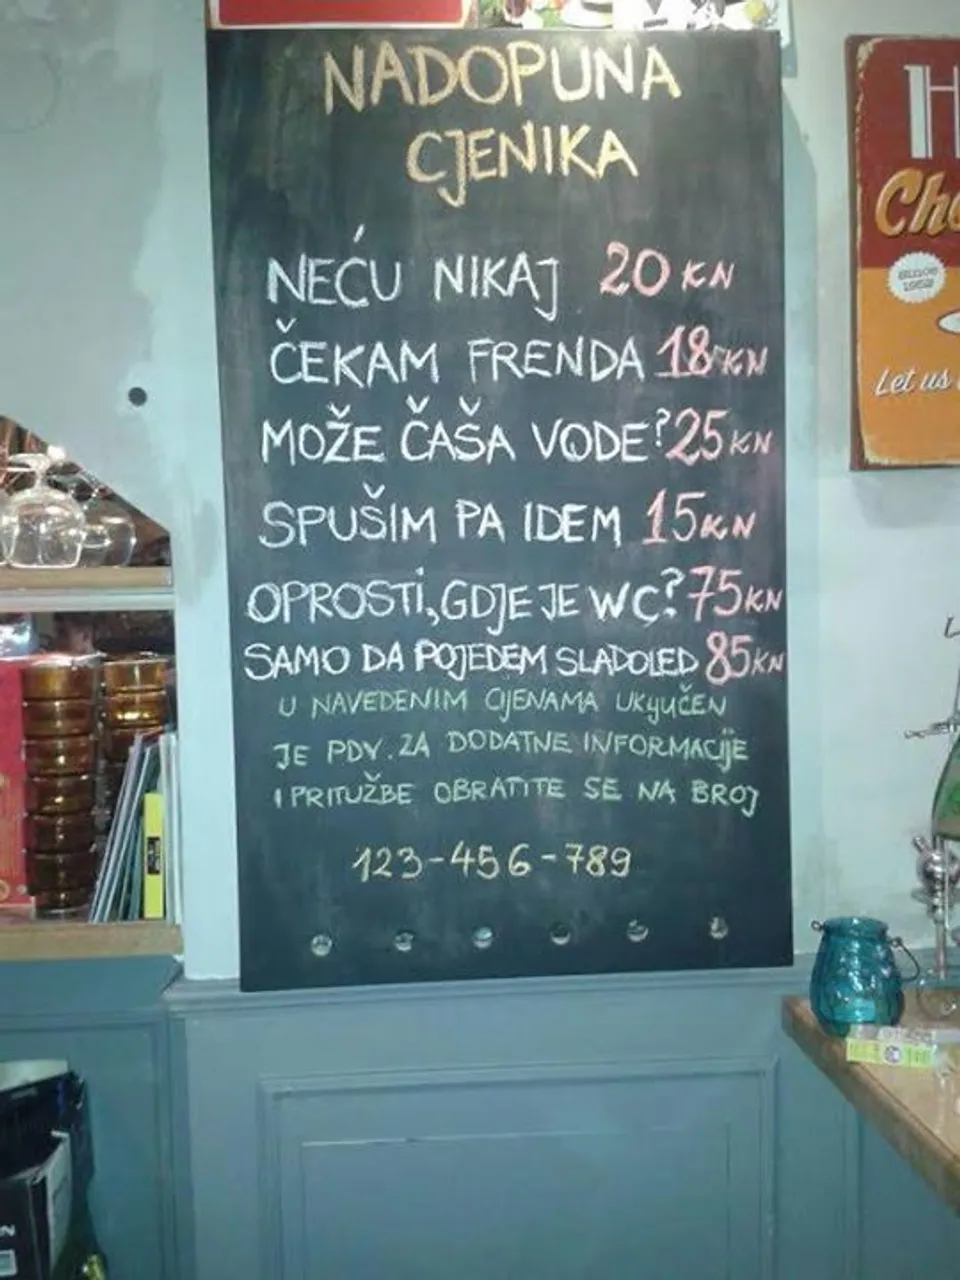 NADOPUNA
CJENIKA
NEĆU NIKAJ 20 KN
ČEKAM FRENDA 18 KN
MOŽE ČAŠA VODE? 25 KN
SPUŠIM PA IDEM 15 KN
OPROSTI, GDJE JE WC? 75 KN
SAMO DA POJEDEM SLADOLED 85 KN
U NAVEDENIM CIJENAMA UKYUČEN
JE PDV. ZA DODATNE INFORMACIJE
I PRITUŽBE OBRATITE SE NA BROJ
123-456-789
H
Cho
Let us